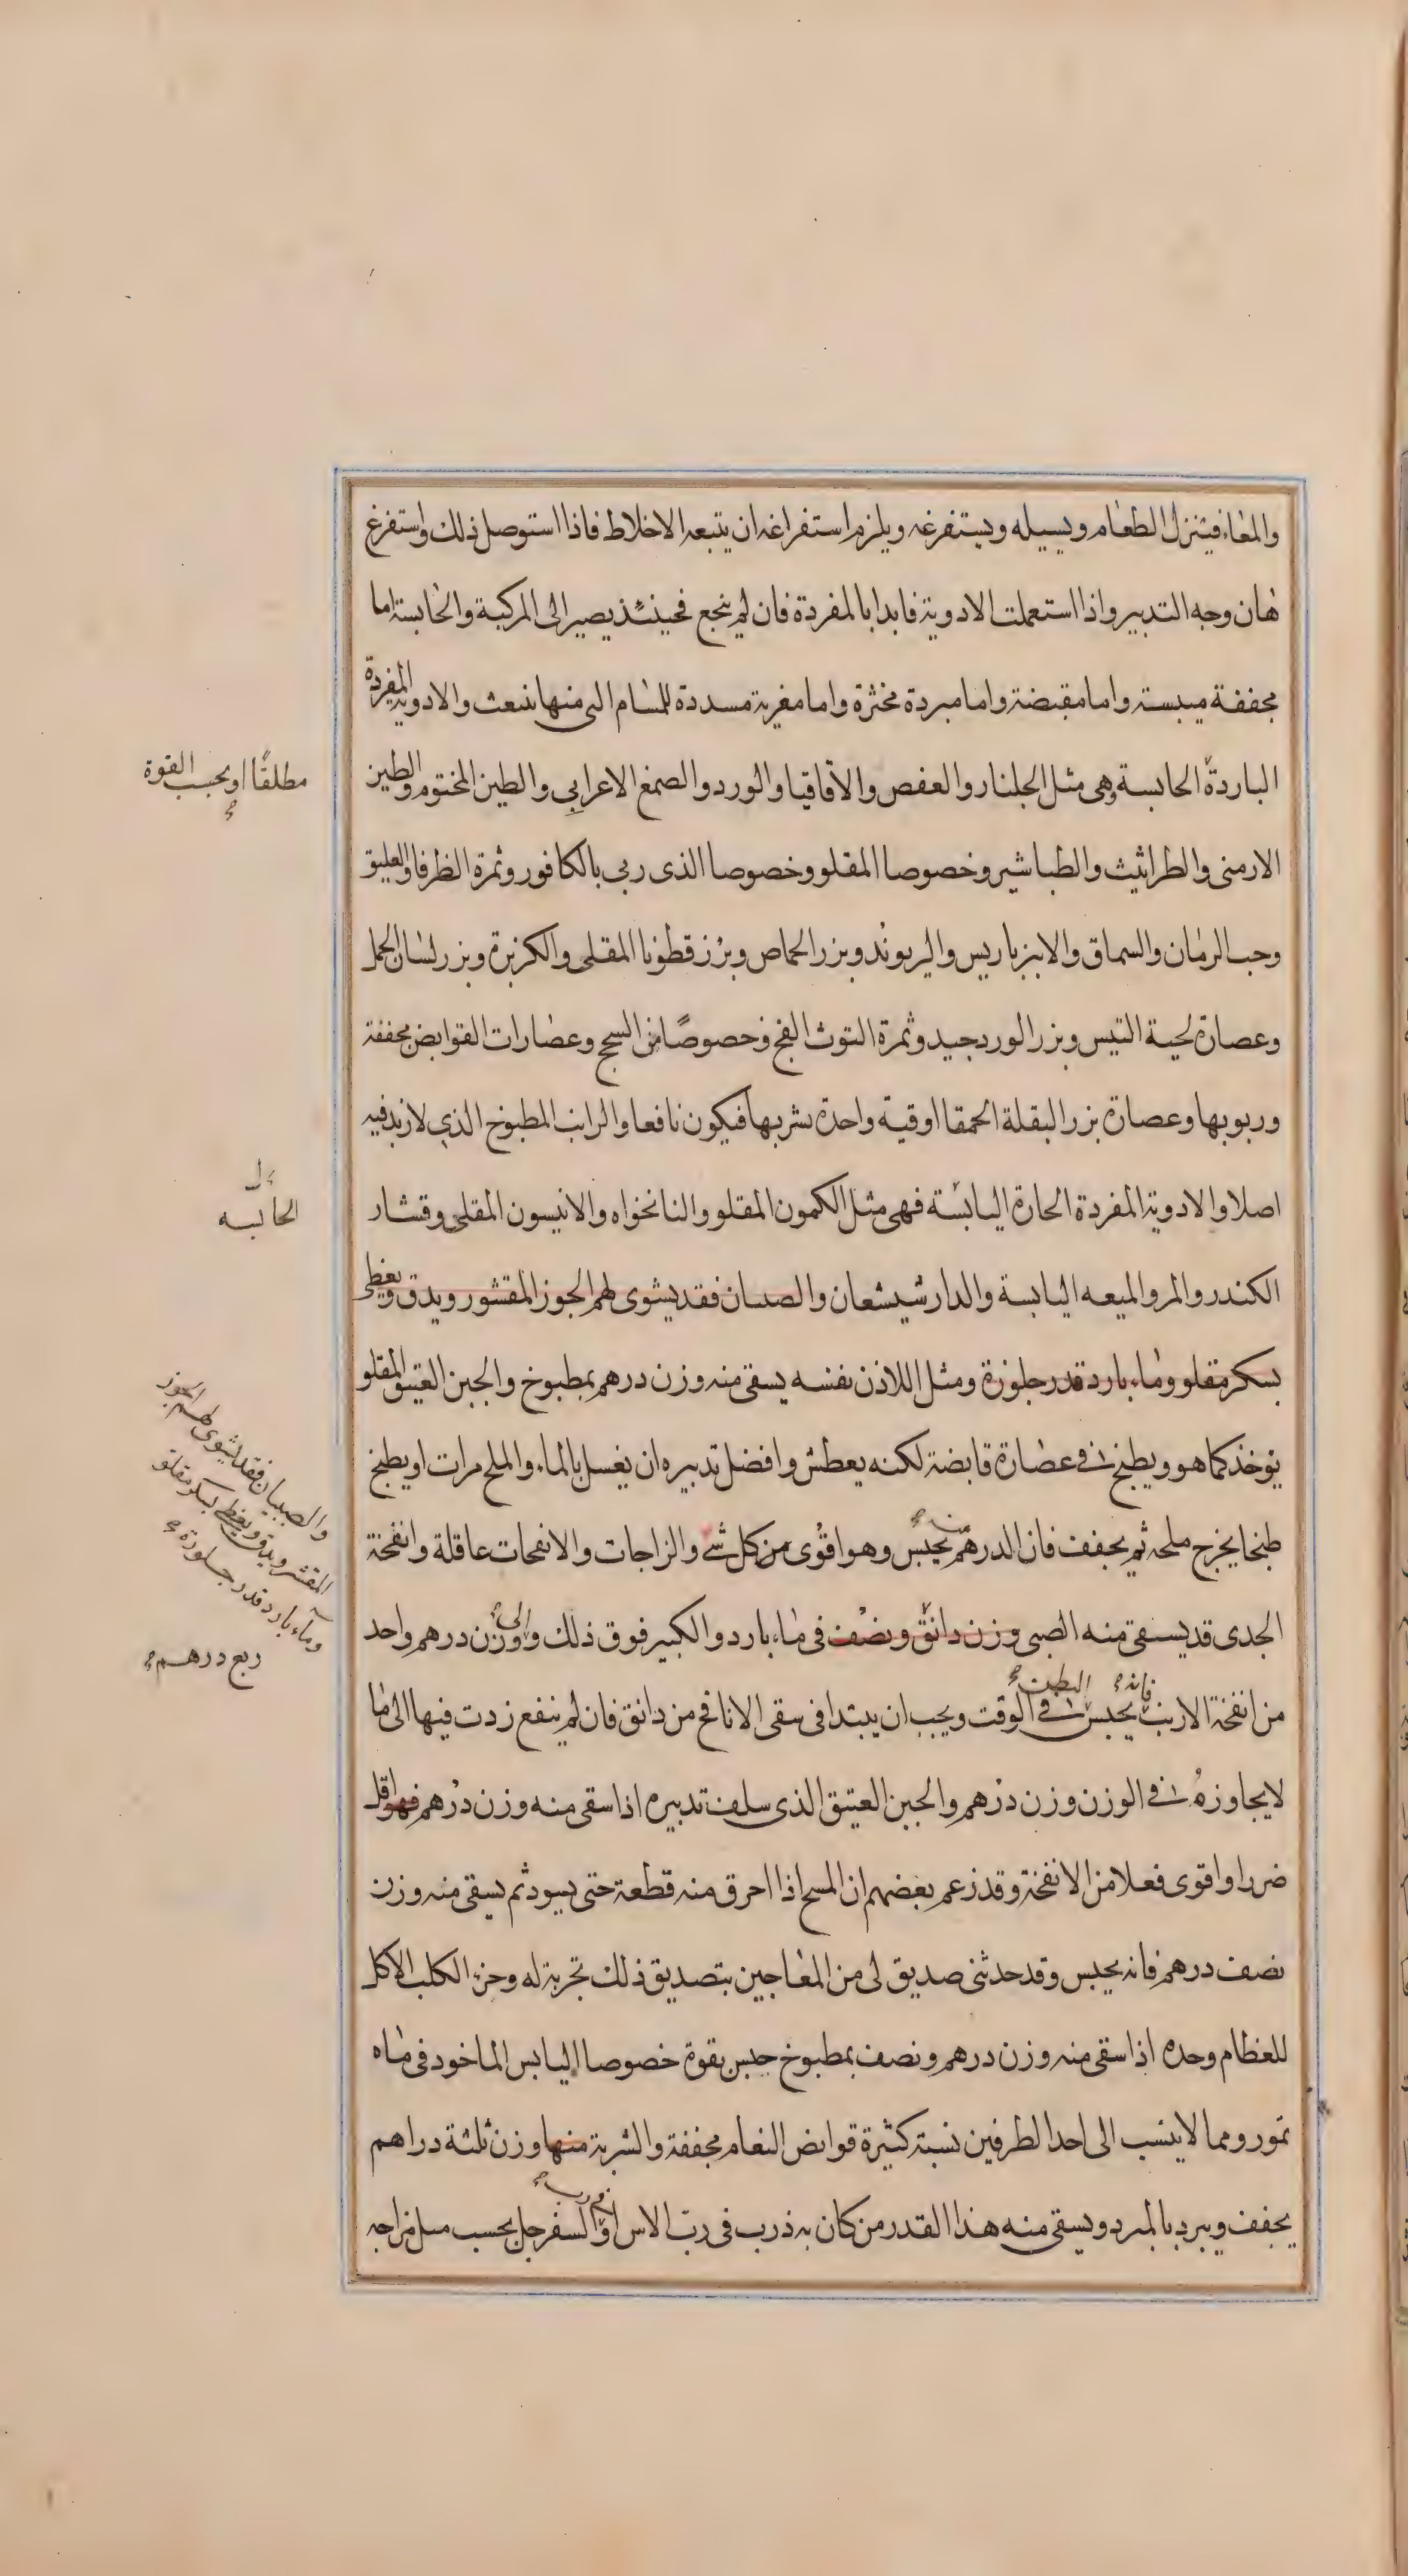 والمعاء فيتنزل الطعام ويسيله ويستفرغه ويلزم استفراغه ان يتبعه الاخلاط فاذا استوصل ذلك واستفرغ
هان وجه التدبير واذا استعملت الادوية فابدا بالمفردة فان لم ينجع فحينئذ يصير الى المركبة والحابسة اما
مجففة ميبسة واما مقبضة واما مبردة مخثرة واما مغرية مسددة للمسام التى منها تنبعث والادوية المفردة
الباردة الحابسة وهى مثل الجلنار والعفص والاقاقيا والورد والصمغ الاعرابي والطين المختوم والطين
مطلقا او بحسب القوة
الارمنى والطراثيث والطباشير وخصوصا المقلو وخصوصا الذى ربى بالكافور وثمرة الطرفا والعليق
وحب الرمان والسماق والانبرباريس والريوند وبزر الحماض وبزر قطونا المقلى والكزبرة وبزر لسان الحمل
وعصارة لحية التيس وبزر الورد جيد وثمرة التوث الفج وخصوصا من السحج وعصارات القوابض مجففة
وربوبها وعصارة بزر البقلة الحمقا اوقية واحدة يشربها فيكون نافعا والرائب المطبوخ الذي لا زبد فيه
اصلا والادوية المفردة الحارة اليابسة فهى مثل الكمون المقلو والنانخواه والانيسون المقلى وقشار
الحابسه
الكندر والمر والميعه اليابسة والدارشيشعان والصبيان فقد يشوى لهم الجوز المقشور ويدق ويعطى
بسكر مقلو وماء بارد قدر جلوزة ومثل اللاذن نفسه يسقى منه وزن درهم بمطبوخ والجبن العتيق المقلو
يؤخذ كما هو ويطبخ فى عصارة قابضة لكنه يعطش وافضل تدبيره ان يغسل بالماء والملح مرات او يطبخ
والصبيان فقد يشوى لهم الجوز
المقشر ويدق ويعطى بسكر مقلو
وماء بارد قدر جلوزة
طبخا يخرج ملحه ثم يجفف فان الدرهم منه يحبس وهو اقوى من كل شے والزاجات والانفحات عاقلة وانفحة
الجدى قد يسقى منه الصبى وزن دانق ونصف فى ماء بارد والكبير فوق ذلك والى وزن درهم واحد
ربع درهم
من انفخة الارنب فانه يحبس البطن فى الوقت ويجب ان يبتدا فى سقى الانافح من دانق فان لم ينفع زدت فيها الى ما
لا يجاوزه فى الوزن وزن درهم والجبن العتيق الذى سلف تدبيره اذا سقى منه وزن درهم فهو اقل
ضررا واقوى فعلا من الانفخة وقد زعم بعضهم ان المسح اذا احرق منه قطعة حتى يسود ثم يسقى منه وزن
نصف درهم فانه يحبس وقد حدثنى صديق لى من المعاجين بتصديق ذلك تجربة له وخرء الكلب الاكل
للعظام وحده اذا سقى منه وزن درهم ونصف بمطبوخ حبس بقوة خصوصا اليابس الماخود فى ماه
تمور ومما لا ينسب الى احد الطرفين نسبة كثيرة قوانص النعام مجففة والشربة منها وزن ثلثة دراهم
يجفف ويبرد بالمبرد ويسقى منه هذا القدر من كان به ذرب فى رب الاس او رب السفرجل بحسب ميل مزاجه